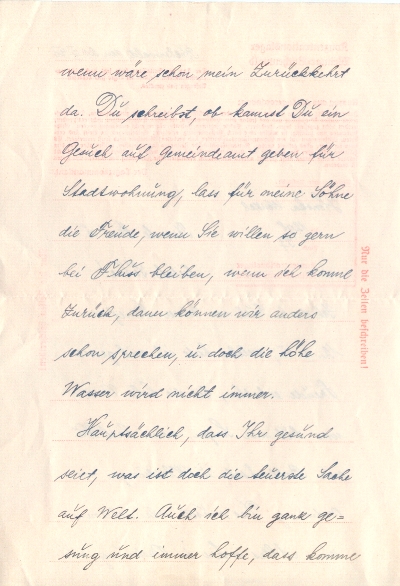 wenn wäre schon mein Zurückkehrt
da. Du schreibst, ob kannst Du ein
Gesuch auf Gemeindeamt geben für
Stadtwohnung, lass für meine Söhne
die Freude, wenn Sie willen so gern
bei Fluss bleiben, wenn ich komme
zurück, dann können wir anders
schon sprechen, u. doch die höhe
Wasser wird nicht immer.
Hauptsächlich, dass Ihr gesund
seiet, was ist doch die teuerste Sache
auf Welt. Auch ich bin ganz ge=
sung und immer hoffe, dass komme
Nur die Zeilen beschreiben!